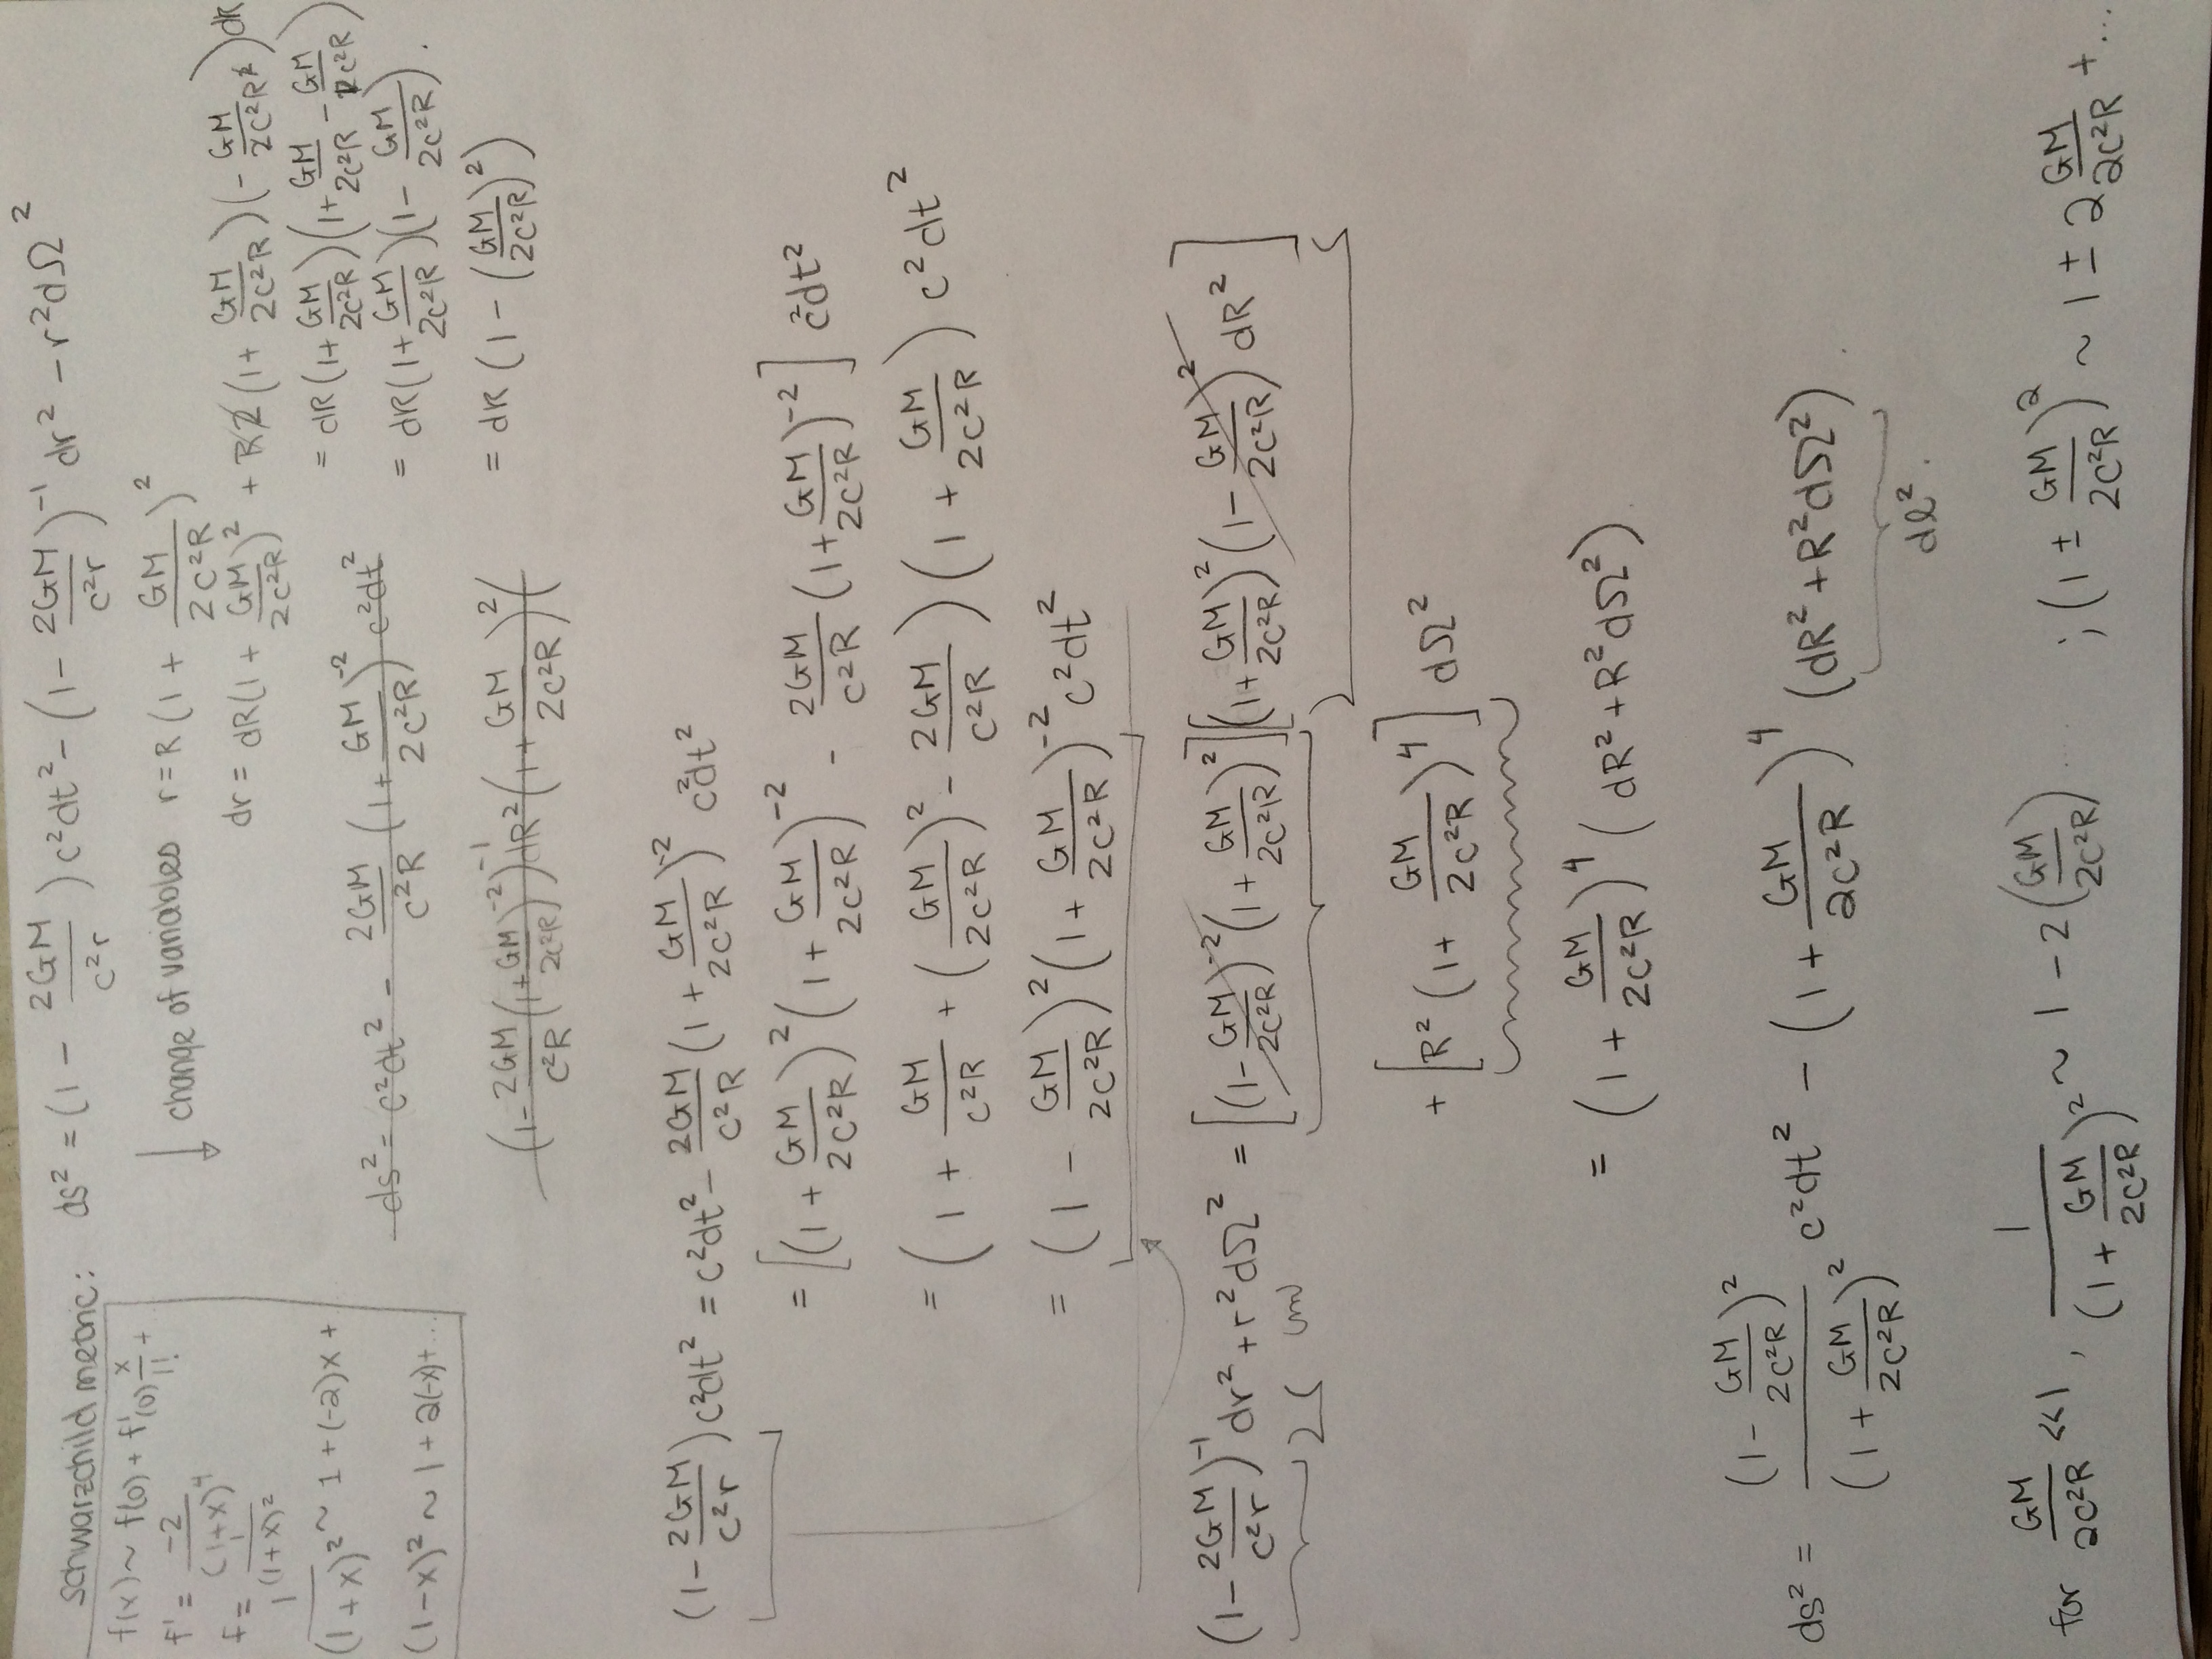 schwarzchild metric: ds² = (1 - 2GM/c²r) c²dt² - (1 - 2GM/c²r)⁻¹ dr² - r²dΩ²
f(x) ~ f(0) + f'(0) x/1! +
f' = -2/(1+x)⁴
f = 1/(1+x)²
1/(1+x)² ~ 1 + (-2)x +
(1-x)² ~ 1 + 2(-x) + ...
↓ change of variables r = R (1 + GM/2c²R)²
dr = dR(1 + GM/2c²R)² + R2 (1 + GM/2c²R)(- GM/2c²R²) dR
= dR(1 + GM/2c²R)(1 + GM/2c²R - GM/c²R)
= dR(1 + GM/2c²R)(1 - GM/2c²R).
= dR (1 - (GM/2c²R)²)
ds² = c²dt² - 2GM/c²R (1 + GM/2c²R)⁻² c²dt²
(1 - 2GM/c²R (1 + GM/2c²R)⁻²)⁻¹ dR² (1 + GM/2c²R)² (
(1 - 2GM/c²r) c²dt² = c²dt² - 2GM/c²R (1 + GM/2c²R)⁻² c²dt²
= [(1 + GM/2c²R)² (1 + GM/2c²R)⁻² - 2GM/c²R (1 + GM/2c²R)⁻²] c²dt²
= (1 + GM/c²R + (GM/2c²R)² - 2GM/c²R) (1 + GM/2c²R) c²dt²
= (1 - GM/2c²R)² (1 + GM/2c²R)⁻² c²dt²
(1 - 2GM/c²r)⁻¹ dr² + r²dΩ² = [(1 - GM/2c²R)⁻² (1 + GM/2c²R)²][(1 + GM/2c²R)² (1 - GM/2c²R)² dR²]
+ [R² (1 + GM/2c²R)⁴] dΩ²
= (1 + GM/2c²R)⁴ (dR² + R²dΩ²)
ds² = (1 - GM/2c²R)²/(1 + GM/2c²R)² c²dt² - (1 + GM/2c²R)⁴ (dR² + R²dΩ²).
dl².
for GM/2c²R <<1, 1/(1 + GM/2c²R)² ~ 1 - 2(GM/2c²R) .... ; (1 ± GM/2c²R)² ~ 1 ± 2 GM/2c²R + ...